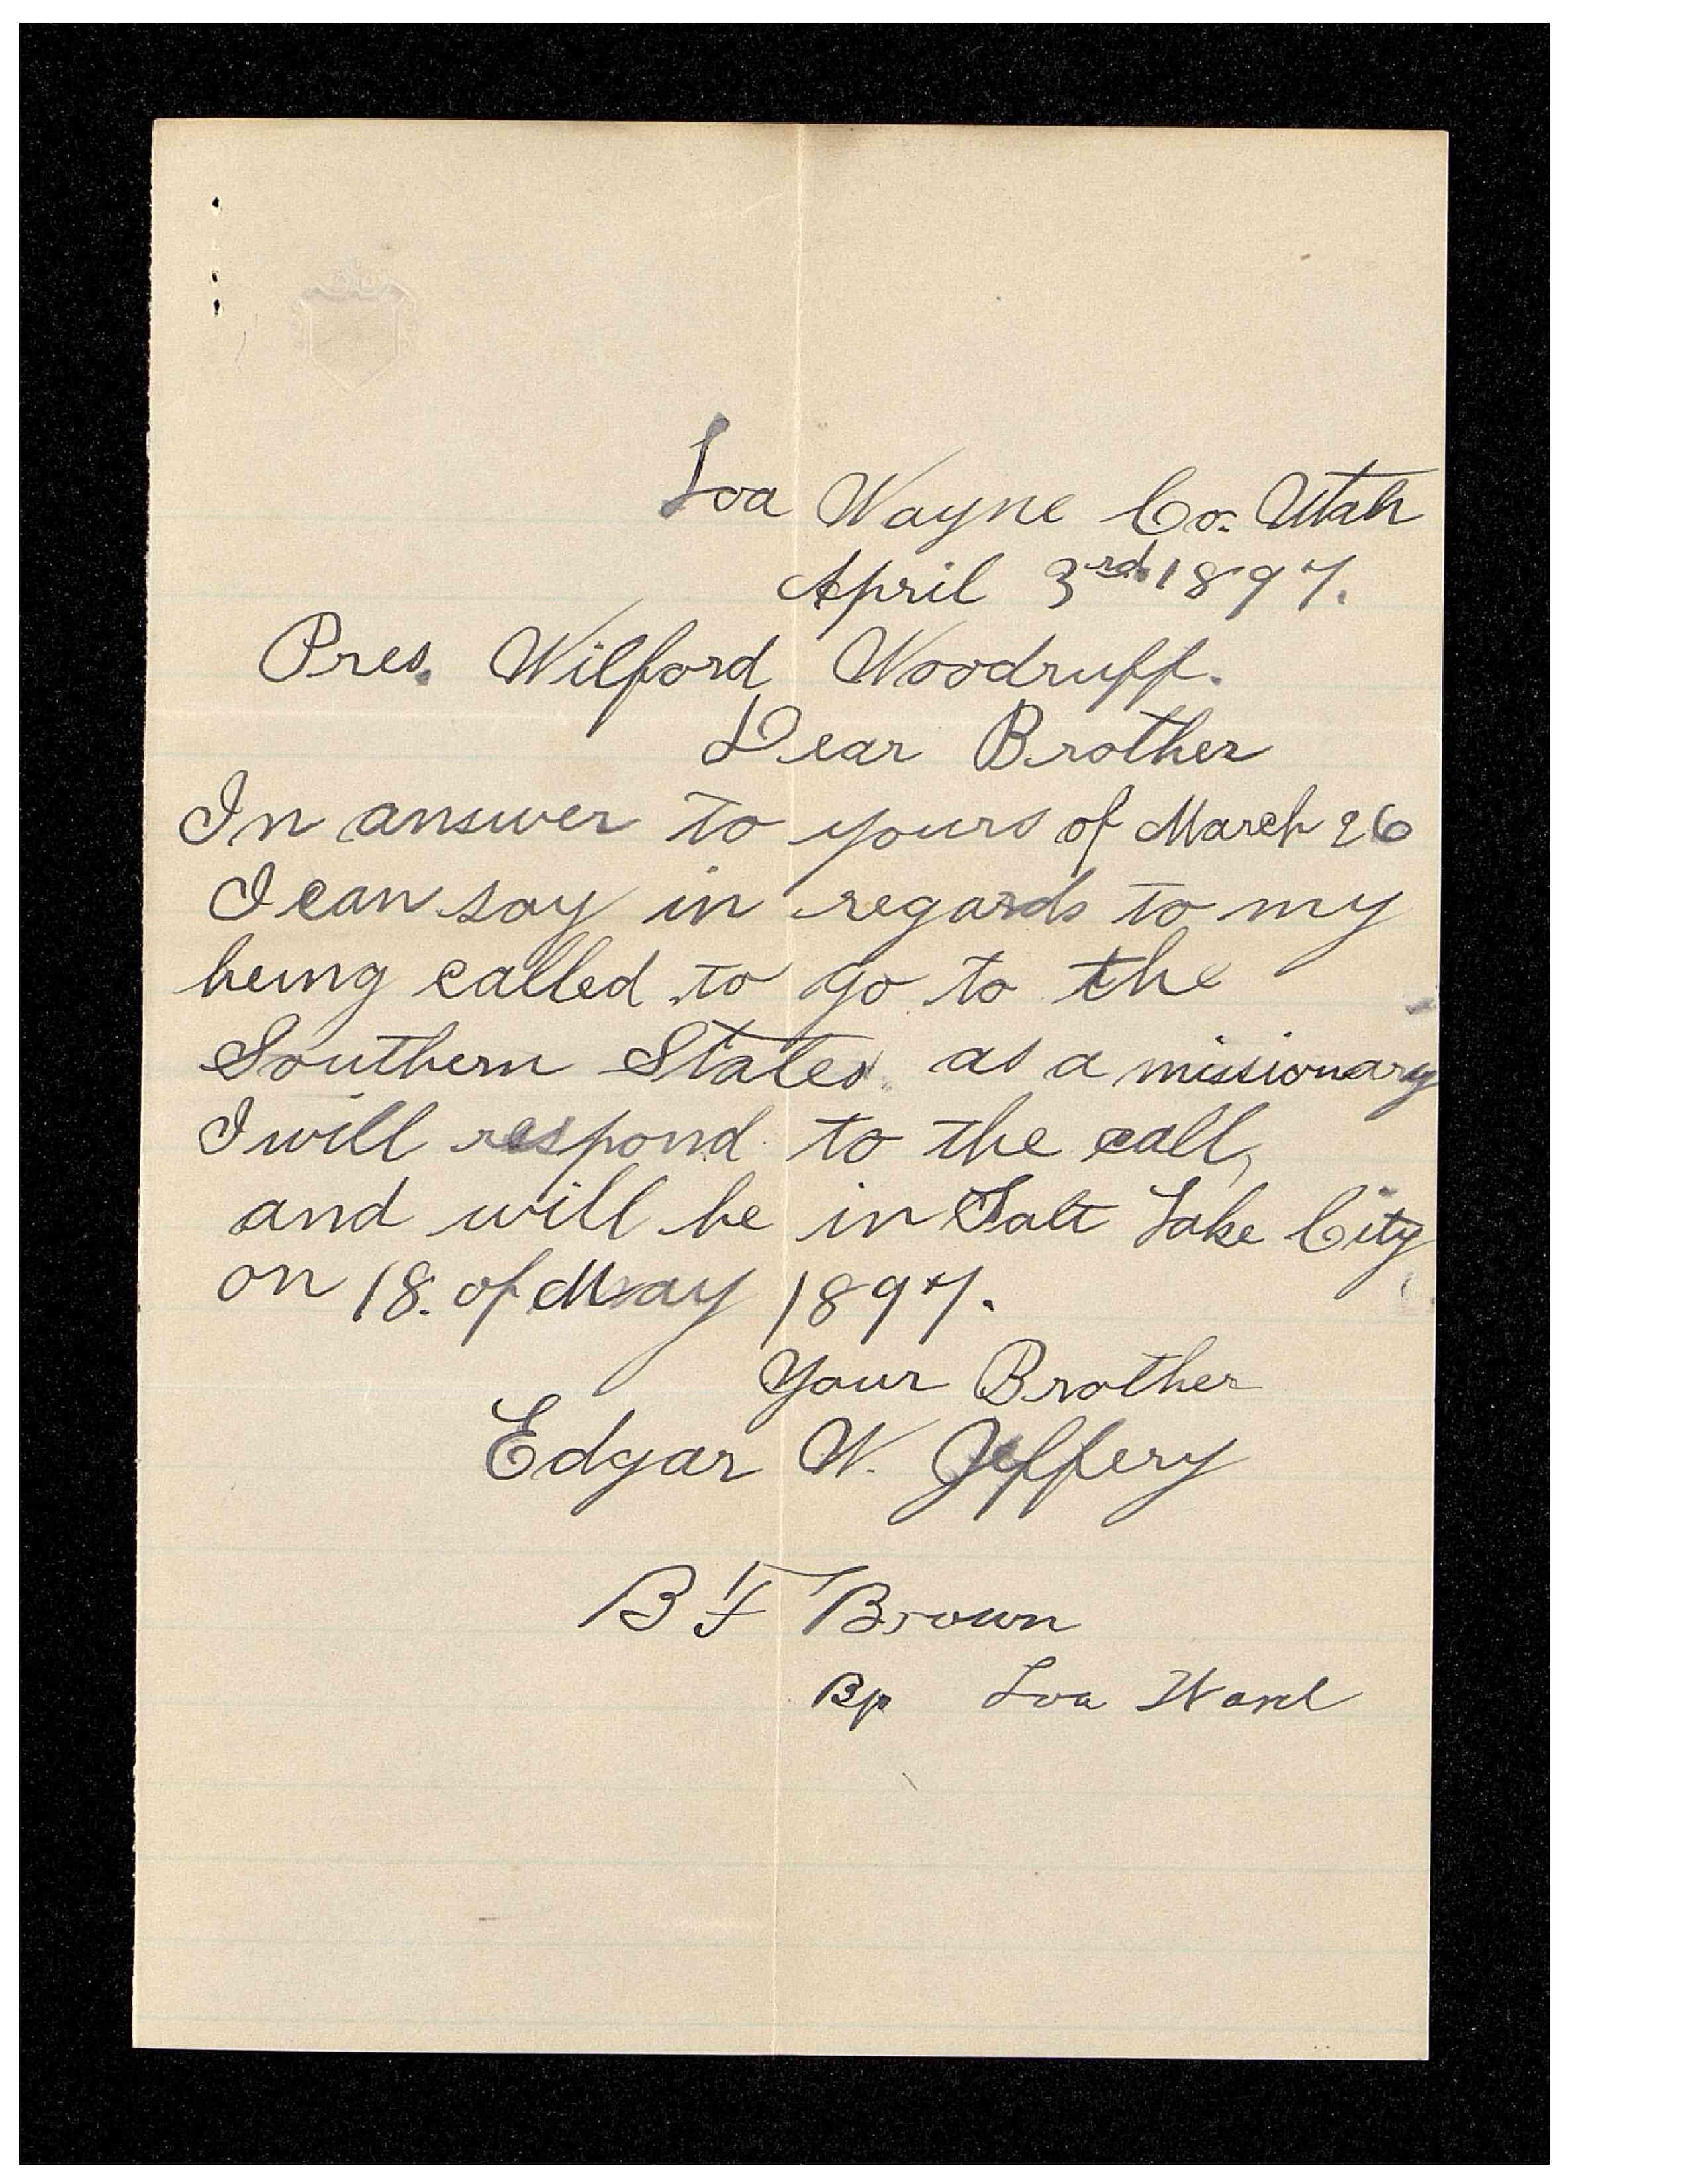 Loa Wayne Co. Utah
April 3rd 1897.
Pres. Wilford Woodruff.
Dear Brother
In answer to yours of March 26
I can say in regards to my
being called to go to the
Southern States as a missionary
I will respond to the call,
and will be in Salt Lake City
on 18. of May 1897.
Your Brother
Edgar W. Jeffery
B F Brown
Bp Loa Ward